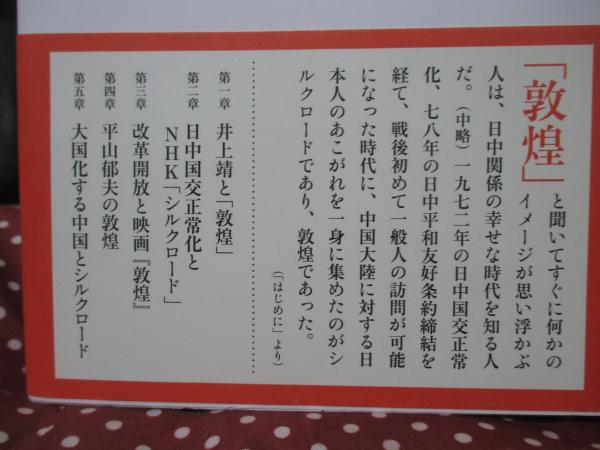 「敦煌」と聞いてすぐに何かの
イメージが思い浮かぶ
人は、日中関係の幸せな時代を知る人
だ。（中略）一九七二年の日中国交正常
化、七八年の日中平和友好条約締結を
経て、戦後初めて一般人の訪問が可能
になった時代に、中国大陸に対する日
本人のあこがれを一身に集めたのがシ
ルクロードであり、敦煌であった。
（「はじめに」より）
第一章 井上靖と「敦煌」
第二章 日中国交正常化と
NHK「シルクロード」
第三章 改革開放と映画『敦煌』
第四章 平山郁夫の敦煌
第五章 大国化する中国とシルクロード